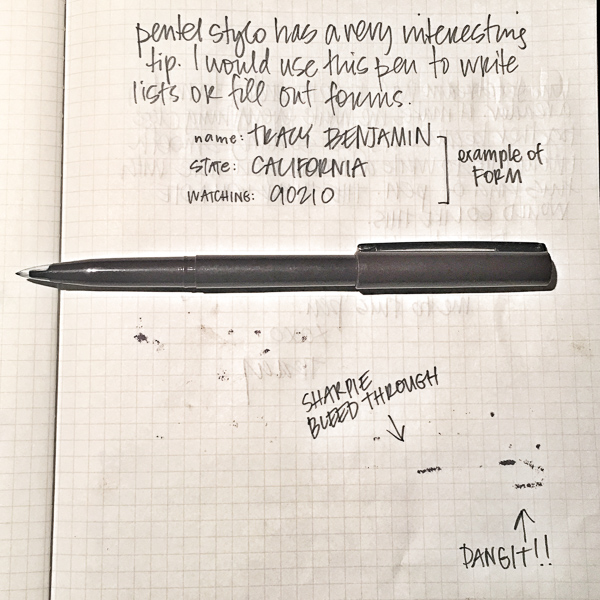 pentel stylo has a very interesting
tip. I would use this pen to write
lists or fill out forms.
name: TRACY BENJAMIN
STATE: CALIFORNIA
WATCHING: 90210
example of
FORM
SHARPIE
BLEED THROUGH
DANGIT!!